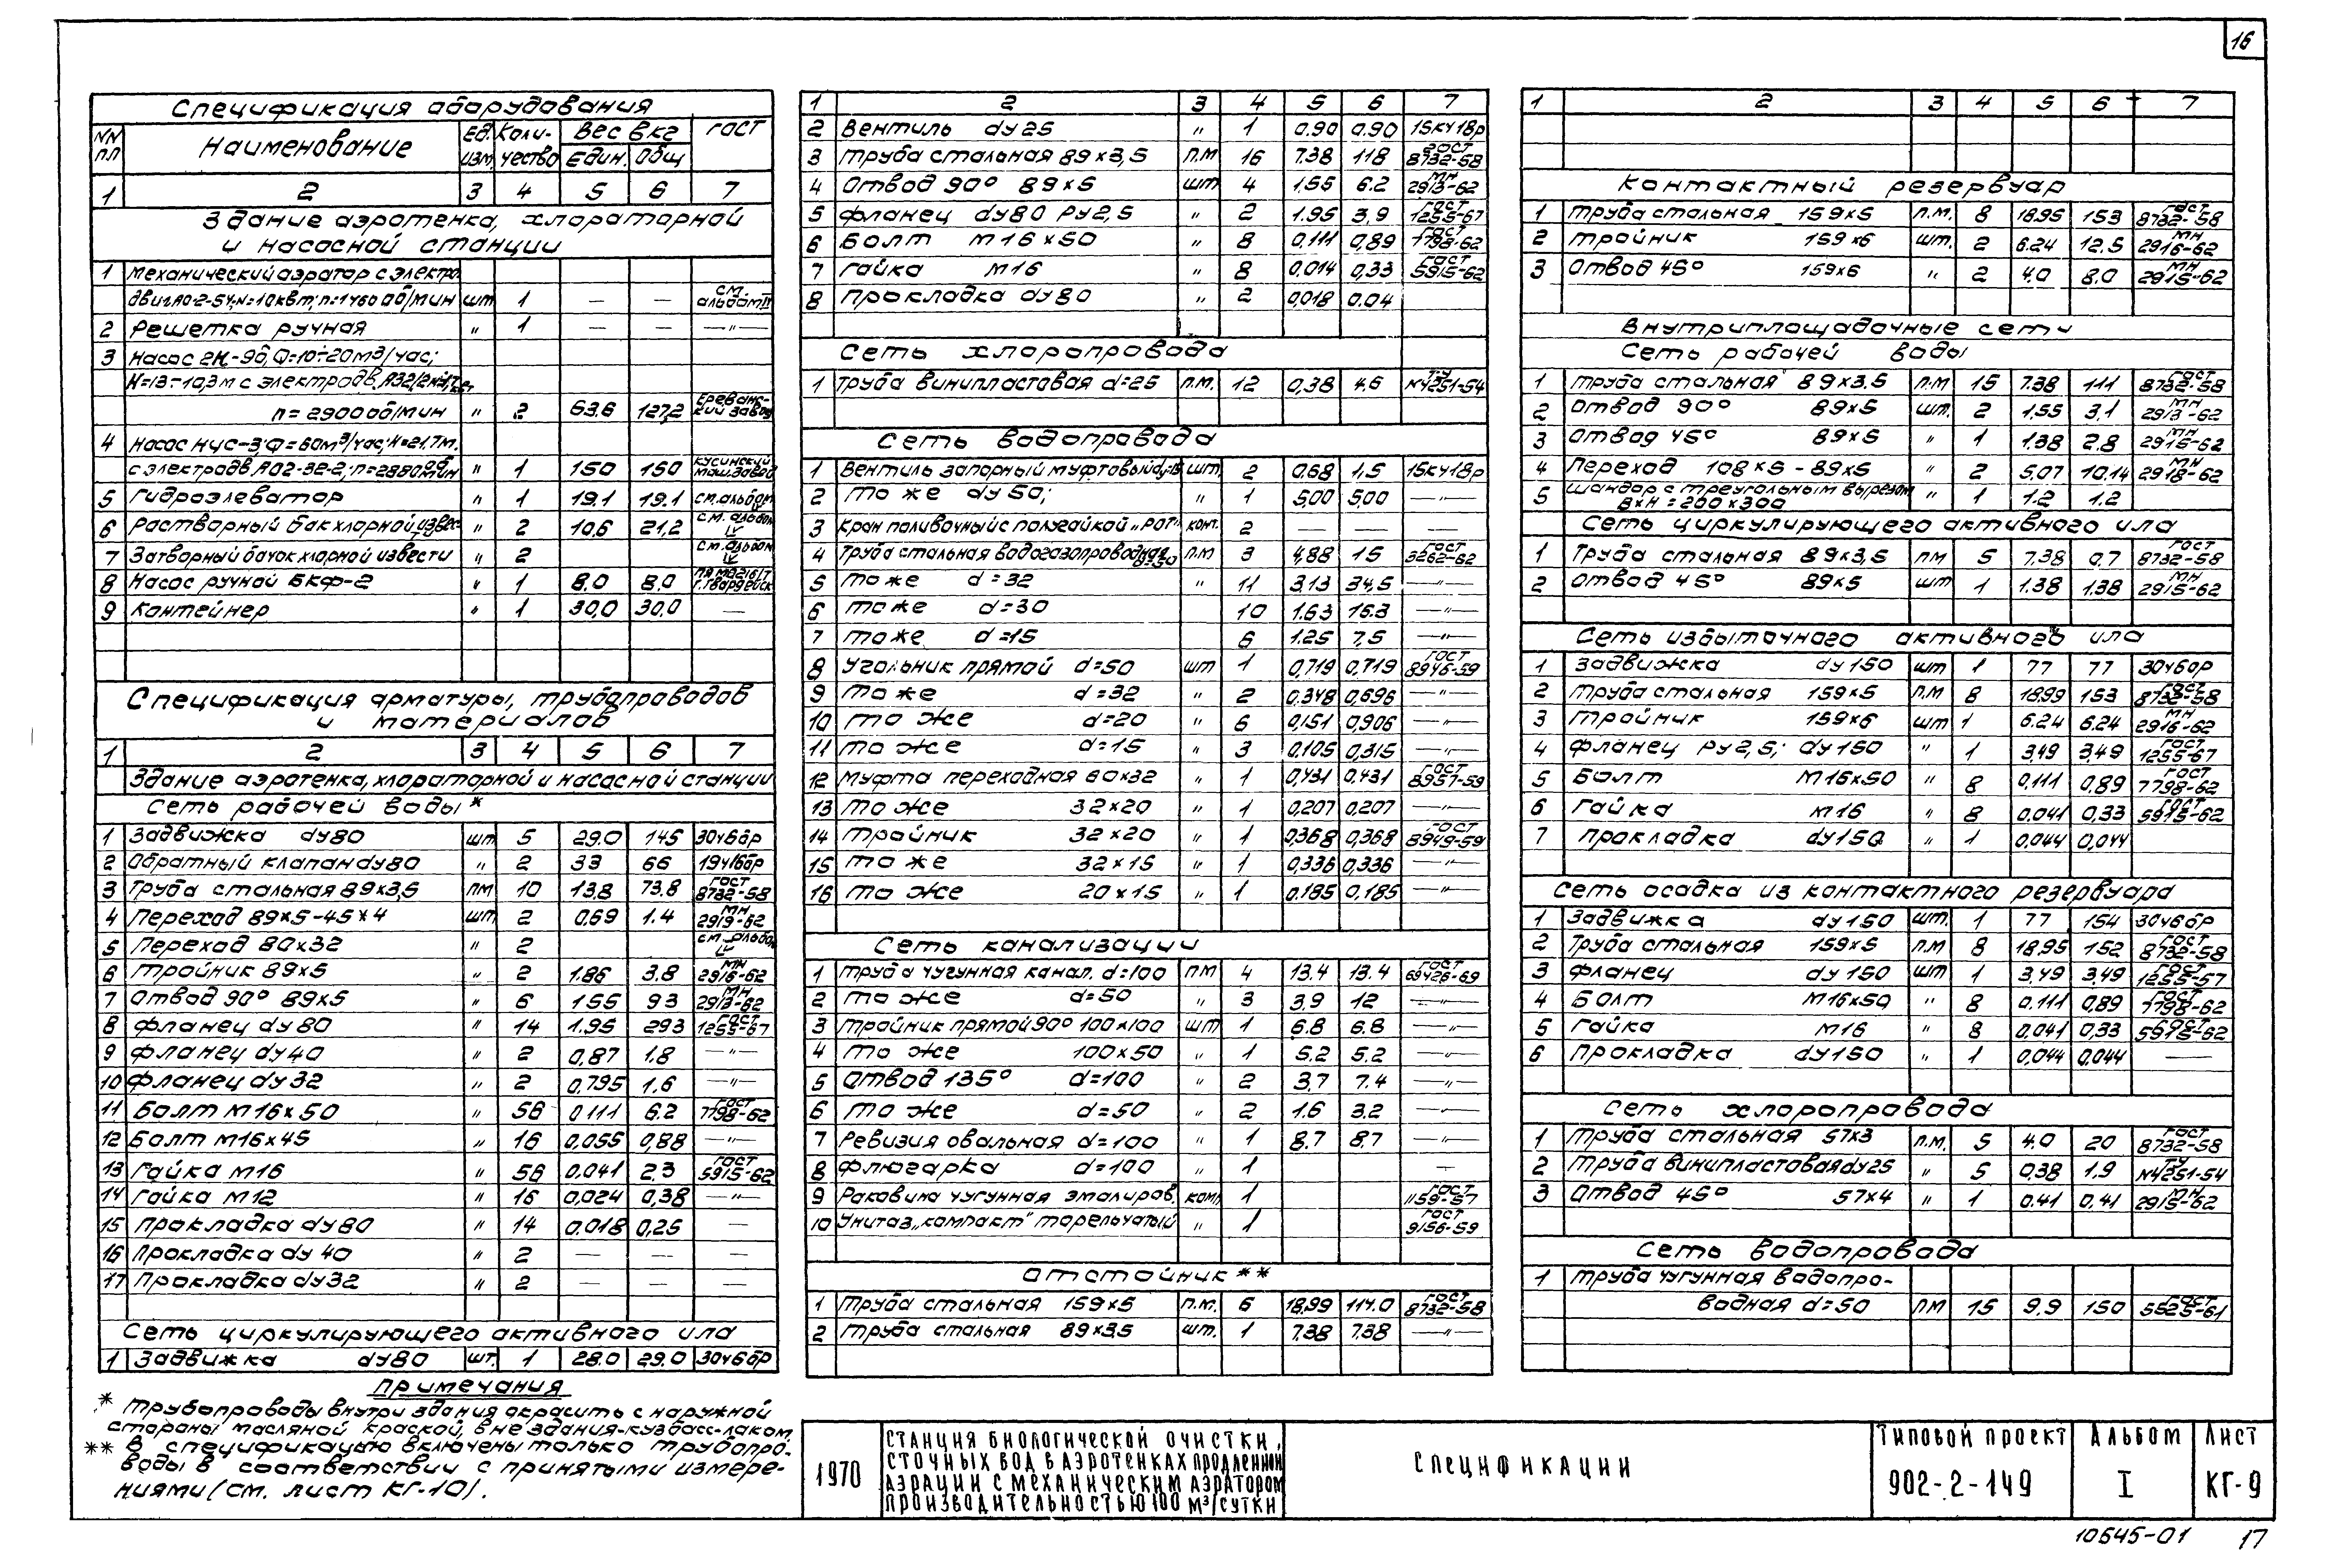 16
Спецификация оборудования
NN пп Наименование Ед. изм. Коли-чество Вес в кг Един. Общ ГОСТ
1 2 3 4 5 6 7
Здание аэротенка, хлораторной
и насосной станции
1 Механический аэратор с электро
двиг. АО2-54; N=10квт; n=1460 об/мин шт 1 — — см. альбом
2 Решетка ручная " 1 — — —"—
3 Насос 2К-9б, Q=10÷20м3/час;
n=2900 об/мин " 2 63.6 127,2 Ереванский завод
4 Насос НЦС-3; Q=60м3/час; H=21.7м.
с электродв. АО2-32-2; n=2880 об/мин " 1 150 150 Кусинский маш. завод
5 Гидроэлеватор " 1 19.1 19.1 см. альбом
6 Растворный бак хлорной извес " 2 10,6 21,2 см. альбом IV
7 Затворный бачок хлорной извести " 2 см. альбом IV
8 Насос ручной БКФ-2 " 1 8.0 8.0
9 Контейнер " 1 30,0 30,0 —
Спецификация арматуры, трубопроводов
и материалов
1 2 3 4 5 6 7
Здание аэротенка, хлораторной и насосной станции
Сеть рабочей воды *
1 Задвижка dу80 шт 5 29.0 145 30ч6бр
2 Обратный клапан dу80 " 2 33 66 19ч16бр
3 Труба стальная 89х3,5 пм 10 13.8 73,8 ГОСТ 8732-58
4 Переход 89х5-45х4 шт. 2 0.69 1.4 МН 2919-62
5 Переход 80х32 " 2 см. альбом IV
6 Тройник 89х5 " 2 1.86 3.8 МН 2916-62
7 Отвод 90° 89х5 " 6 1.55 93 МН 2913-62
8 Фланец dу80 " 14 1.95 293 ГОСТ 1255-67
9 Фланец dу40 " 2 0,87 1.8 —"—
10 Фланец dу32 " 2 0,795 1.6 —"—
11 Болт М16х50 " 56 0.111 6.2 ГОСТ 7798-62
12 Болт М16х45 " 16 0,055 0,88 —"—
13 Гайка М16 " 56 0,041 2.3 ГОСТ 5915-62
14 Гайка М12 " 16 0,024 0,38 —"—
15 Прокладка dу80 " 14 0.018 0,25 —
16 Прокладка dу40 " 2 — — —
17 Прокладка dу32 " 2 — — —
Сеть циркулирующего активного ила
1 Задвижка dу80 шт. 1 28.0 29.0 30ч6бр
Примечания
* Трубопроводы внутри здания окрасить с наружной
стороны масляной краской, вне здания-кузбасс-лаком
** В спецификацию включены только трубопро-
воды в соответствии с принятыми измере-
ниями (см. лист КГ-10).
1 2 3 4 5 6 7
2 Вентиль dу25 " 1 0.90 0.90 15кч18р
3 Труба стальная 89х3,5 п.м 16 7.38 118 ГОСТ 8732-58
4 Отвод 90° 89х5 шт 4 1.55 6.2 МН 2913-62
5 Фланец dу80 Ру2,5 " 2 1.95 3,9 ГОСТ 1255-67
6 Болт М16х50 " 8 0,111 0,89 ГОСТ 7798-62
7 Гайка М16 " 8 0,014 0,33 ГОСТ 5915-62
8 Прокладка dу80 " 2 0,018 0.04
Сеть хлоропровода
1 Труба винипластовая d=25 п.м. 12 0,38 4.6 ТУ N4251-54
Сеть водопровода
1 Вентиль запорный муфтовый dу=15 шт. 2 0.68 1,5 15кч18р
2 То же dу50; " 1 5,00 5,00 —"—
3 Кран поливочный с полугайкой „РОТ" конт. 2 — — —
4 Труба стальная водогазопроводная d=50 п.м 3 4,88 15 ГОСТ 3262-62
5 То же d=32 " 11 3.13 34,5 —"—
6 То же d=30 10 1.63 16.3 —"—
7 То же d=15 6 1.25 7,5 —"—
8 Угольник прямой d=50 шт 1 0,719 0,719 ГОСТ 8946-59
9 То же d=32 " 2 0.348 0,696 —"—
10 То же d=20 " 6 0,151 0,906 —"—
11 То же d=15 " 3 0.105 0,315 —"—
12 Муфта переходная 60х32 " 1 0,431 0.431 ГОСТ 8957-59
13 То же 32х20 " 1 0,207 0,207 —"—
14 Тройник 32х20 " 1 0,368 0,368 ГОСТ 8949-59
15 То же 32х15 " 1 0,336 0,336 —"—
16 То же 20х15 " 1 0.185 0,185 —"—
Сеть канализации
1 Труба чугунная канал. d=100 пм 4 13.4 13.4 ГОСТ 69426-69
2 То же d=50 " 3 3.9 12 —"—
3 Тройник прямой 90° 100х100 шт 1 6.8 6.8 —"—
4 То же 100х50 " 1 5.2 5.2 —"—
5 Отвод 135° d=100 " 2 3,7 7.4 —"—
6 То же d=50 " 2 1.6 3.2 —"—
7 Ревизия овальная d=100 " 1 8.7 8,7 —"—
8 Флюгарка d=100 " 1 —
9 Раковина чугунная эмалиров. комп. 1 ГОСТ 1159-57
10 Унитаз „компакт" тарельчатый " 1 ГОСТ 9156-59
Отстойник **
1 Труба стальная 159х5 п.м. 6 18,99 114.0 ГОСТ 8732-58
2 Труба стальная 89х3.5 шт. 1 7.38 7.38 —"—
1 2 3 4 5 6 7
Контактный резервуар
1 Труба стальная 159х5 п.м. 8 18.95 153 ГОСТ 8732-58
2 Тройник 159х6 шт. 2 6.24 12.5 МН 2916-62
3 Отвод 45° 159х6 " 2 4.0 8,0 МН 2915-62
Внутриплощадочные сети
Сеть рабочей воды
1 Труба стальная 89х3,5 п.м 15 7.38 111 ГОСТ 8732-58
2 Отвод 90° 89х5 шт. 2 1,55 3,1 МН 2913-62
3 Отвод 45° 89х5 " 1 1.38 2.8 МН 2915-62
4 Переход 108х5-89х5 " 2 5,07 10.14 МН 2918-62
5 Шандор с треугольным вырезом ВхН=200х300 " 1 1.2 1.2
Сеть циркулирующего активного ила
1 Труба стальная 89х3,5 пм 5 7.38 0.7 ГОСТ 8732-58
2 Отвод 45° 89х5 шт 1 1.38 1.38 МН 2915-62
Сеть избыточного активного ила
1 Задвижка dу150 шт 1 77 77 30ч6бр
2 Труба стальная 159х5 п.м 8 18.99 153 ГОСТ 8732-58
3 Тройник 159х6 шт 1 6.24 6.24 МН 2916-62
4 Фланец Ру2,5; dу150 " 1 3,49 3,49 ГОСТ 1255-67
5 Болт М16х50 " 8 0,111 0,89 ГОСТ 7798-62
6 Гайка М16 " 8 0.041 0,33 ГОСТ 5915-62
7 Прокладка dу150 " 1 0.044 0,044
Сеть осадка из контактного резервуара
1 Задвижка dу150 шт. 1 77 154 30ч6бр
2 Труба стальная 159х5 п.м 8 18,95 152 ГОСТ 8732-58
3 Фланец dу150 шт 1 3,49 3,49 ГОСТ 1255-57
4 Болт М16х50 " 8 0.111 0,89 ГОСТ 7798-62
5 Гайка М16 " 8 0.041 0,33 ГОСТ 5915-62
6 Прокладка dу150 " 1 0.044 0,044 —
Сеть хлоропровода
1 Труба стальная 57х3 п.м. 5 4.0 20 ГОСТ 8732-58
2 Труба винипластовая dу25 " 5 0,38 1.9 ТУ N4251-54
3 Отвод 45° 57х4 " 1 0.41 0,41 МН 2915-62
Сеть водопровода
1 Труба чугунная водопро-
водная d=50 пм 15 9.9 150 ГОСТ 5525-61
1970
Станция биологической очистки,
сточных вод в аэротенках продленной
аэрации с механическим аэратором
производительностью 100 м3/сутки
Спецификации
Типовой проект
902-2-149
Альбом
I
Лист
КГ-9
10645-01 17